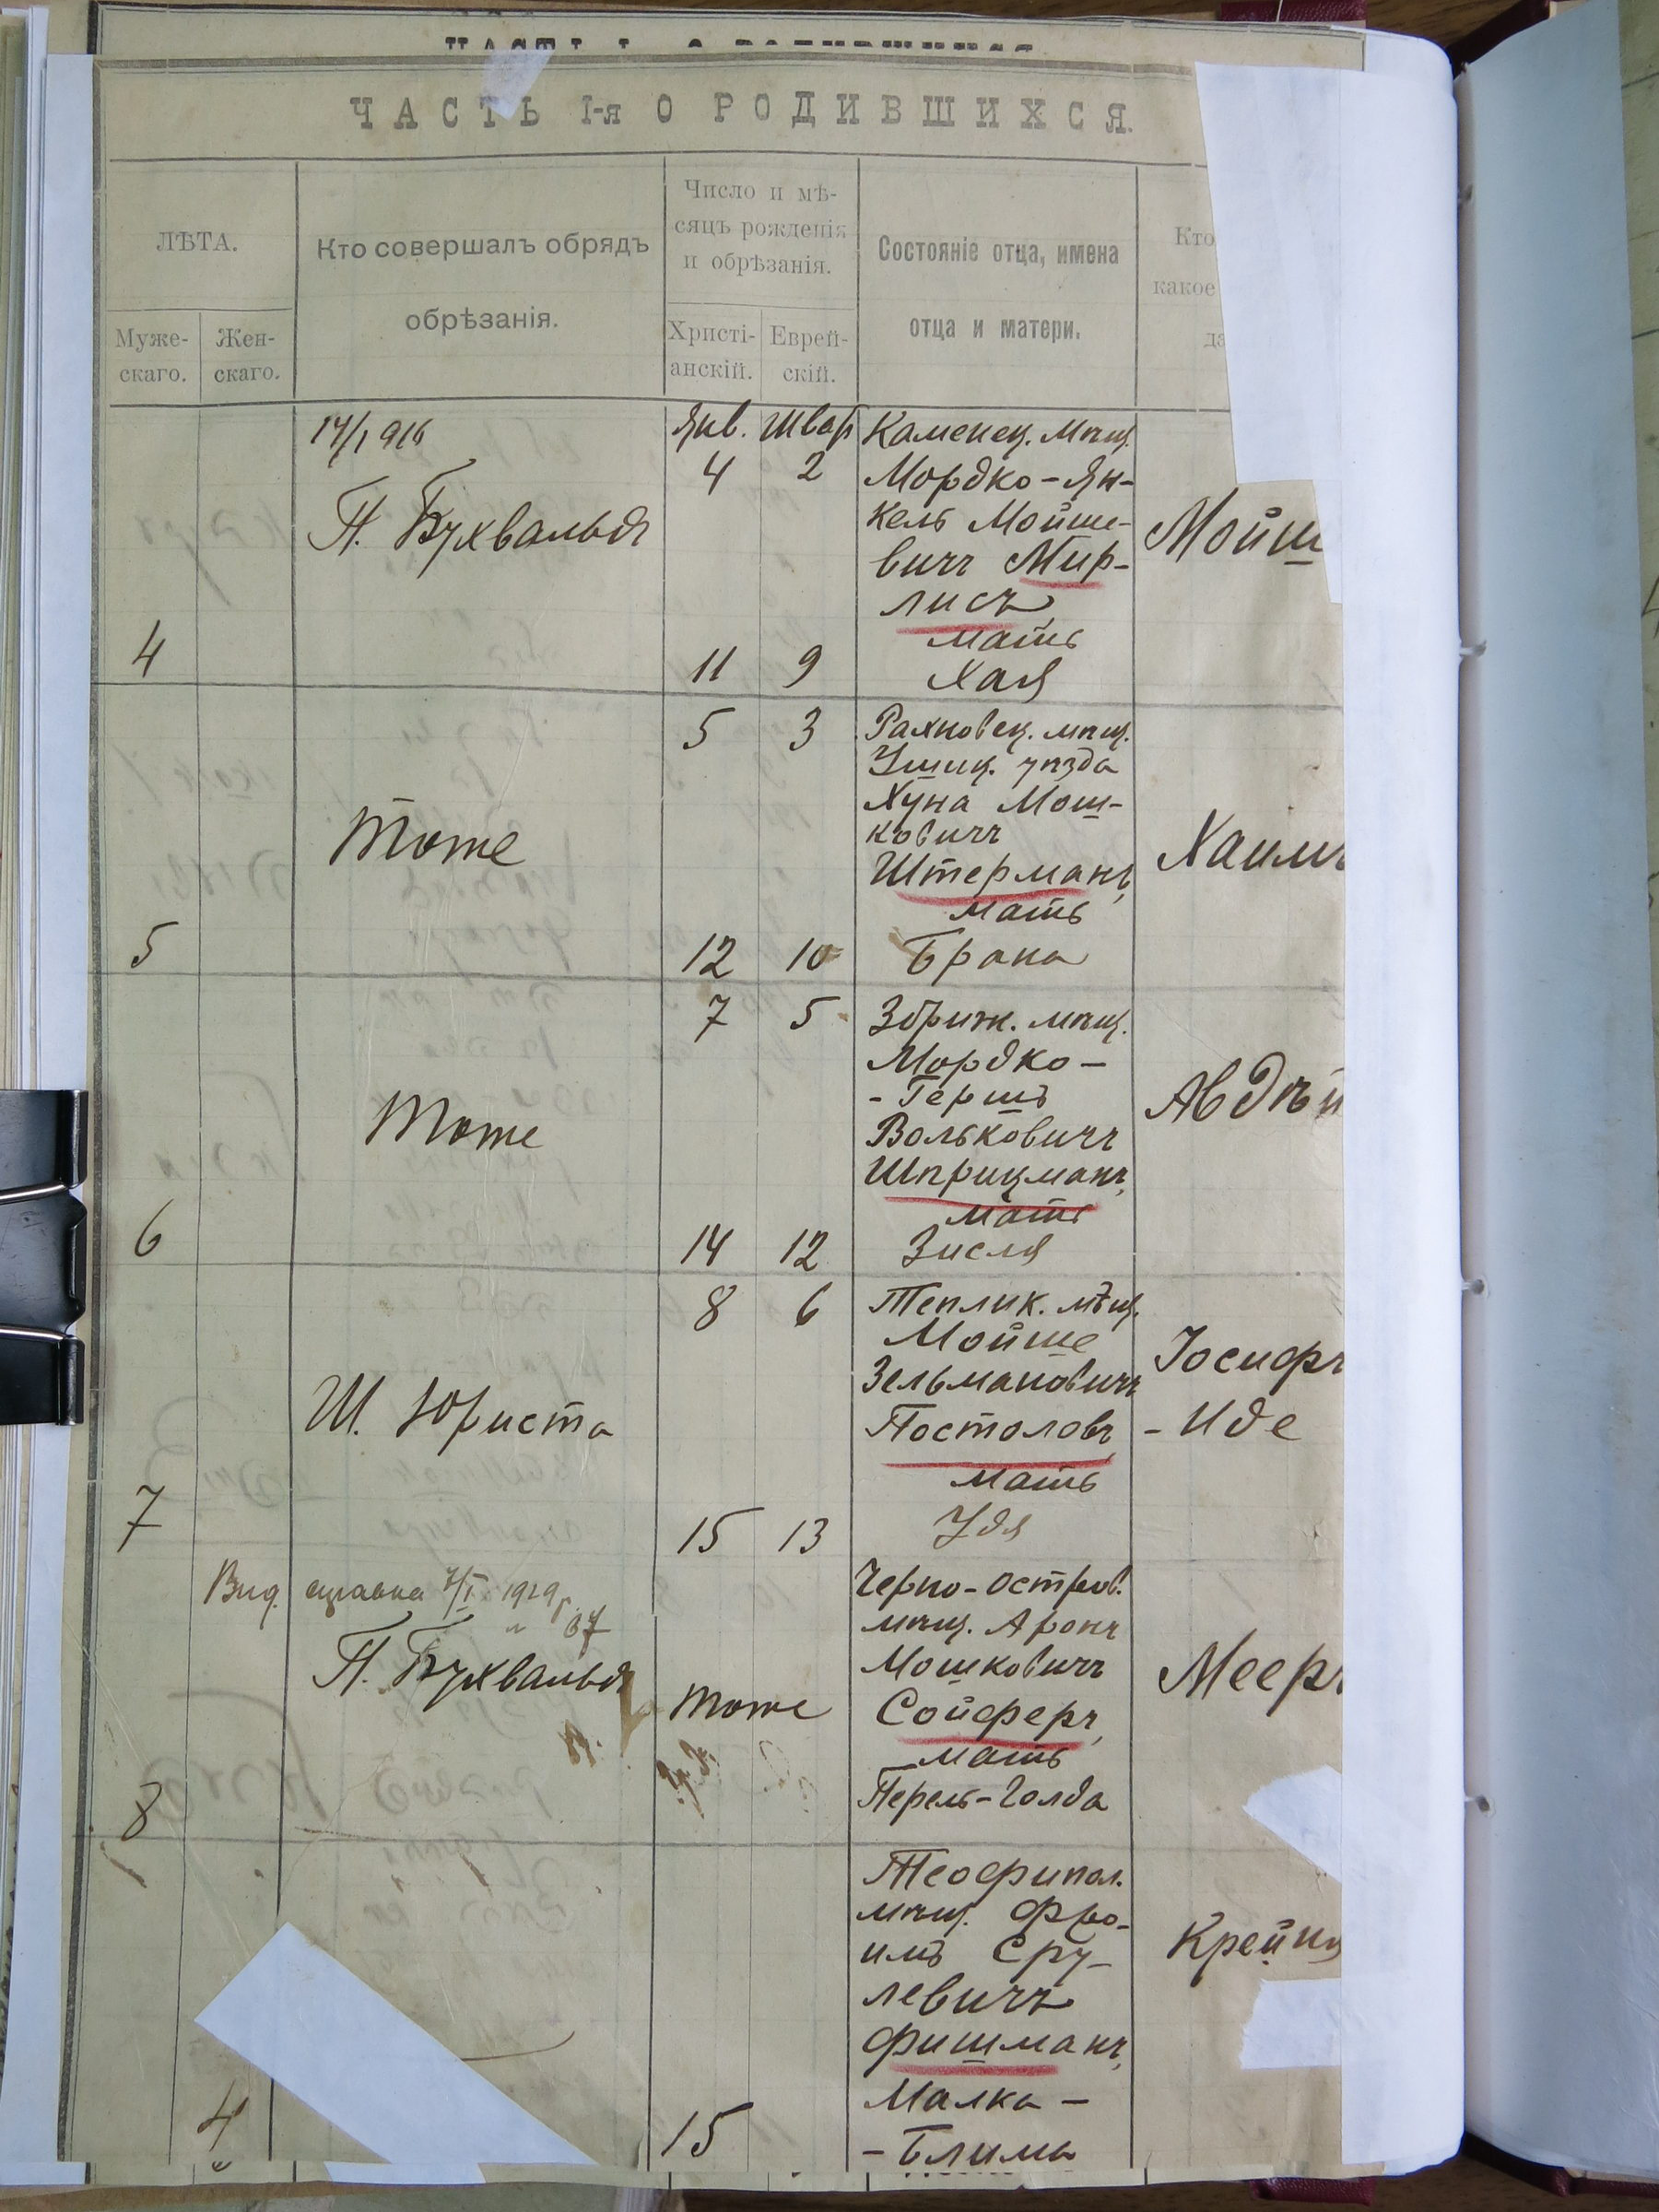 ЧАСТЬ I-я О РОДИВШИХСЯ.
ЛѢТА.
Муже-
скаго.
Жен-
скаго.
Кто совершалъ обрядъ
обрѣзанія.
Число и мѣ-
сяцъ рожденія
и обрѣзанія.
Христі-
анскій.
Еврей-
скій.
Состояніе отца, имена
отца и матери.
Кто
какое
4
П. Бухвальдъ
Янв. Шват
4 2
11 9
Каменец. мѣщ.
Мордко-Ян-
кель Мойше-
вичъ Мир-
лисъ
мать
Хая
Мойш
5
Тоже
5 3
12 10
Рахновец. мѣщ.
Ушиц. уѣзда
Хуна Мош-
ковичъ
Штерманъ,
мать
Брана
Хаимъ
6
Тоже
7 5
14 12
Збриж. мѣщ.
Мордко-
-Гершъ
Вольковичъ
Шприцманъ,
мать
Зисля
Авдѣй
7
Ш. Юриста
8 6
15 13
Теплик. мѣщ.
Мойше
Зельмановичъ
Постоловъ,
мать
Удя
Іосифъ
-Иде
8
1929
П. Бухвальдъ
Тоже
Черно-Остров.
мѣщ. Аронъ
Мошковичъ
Сойферъ,
мать
Перель-Голда
Мееръ
4
15
Теофипол.
мѣщ. Фро-
имъ Сру-
левичъ
Фишманъ,
Малка-
-Блима
Крейни